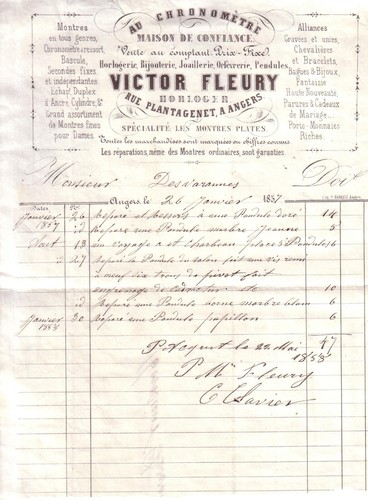 AU CHRONOMÈTRE
MAISON DE CONFIANCE.
Vente au comptant. Prix-Fixe.
Horlogerie, Bijouterie, Joaillerie, Orfèvrerie, Pendules.
VICTOR FLEURY
HORLOGER
RUE PLANTAGENET, A ANGERS
SPÉCIALITÉ DES MONTRES PLATES
Toutes les marchandises sont marquées en chiffres connus
Les réparations, même des Montres ordinaires, sont garanties.
Montres
en tous genres,
Chronomètre a ressort,
Bascule,
Secondes fixes,
et indépendantes
Echapt Duplex
à Ancre, Cylindre, &c
Grand assortiment
de Montres fines
pour Dames.
Alliances
Gravées et unies,
Chevalières
et Bracelets,
Bagues & Bijoux,
Fantaisie
Haute Nouveauté,
Parures & Cadeaux
de Mariage.
Porte-Monnaies
Riches.
Monsieur Desvarannes Doit
Angers, le 26 Janvier 1857
Dates.
Janvier 1857 26 Réparé et ressort à une Pendule doré 14
id Réparé une Pendule marbre Jeanne 5
Août 13 un voyage a st Charleau 6
id 27 Réparé la Pendule du salon fait une vis remis
à neuf dix trous de pivot fait
10
id Réparé une Pendule borne marbre blanc 6
Janvier 1858 30 Réparé une Pendule papillon 6
47
P. Acquit le 22 Mai 1858
P Mr Fleury